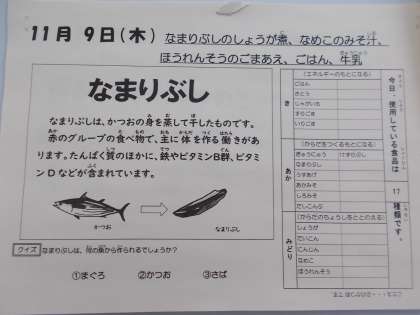 11月 9日(木)
なまりぶしのしょうが煮、なめこのみそ汁、
ほうれんそうのごまあえ、ごはん、牛乳
なまりぶし
なまりぶしは、かつおの身を蒸して干したものです。
赤のグループの食べ物で、主に体を作る働きがあ
ります。たんぱく質のほかに、鉄やビタミンB群、ビタミ
ンDなどが含まれています。
かつお
なまりぶし
クイズ なまりぶしは、何の魚から作られるでしょうか?
①まぐろ ②かつお ③さば
今日、使用している食品は
17
種類です。
き
(エネルギーのもとになる)
ごはん
さとう
じゃがいも
すりごま
いりごま
あか
(からだをつくるもとになる)
ぎゅうにゅう
けずりぶし
なまりぶし
うすあげ
あかみそ
しろみそ
だしこんぶ
みどり
(からだのちょうしをととのえる)
しょうが
だいこん
にんじん
なめこ
ほうれんそう